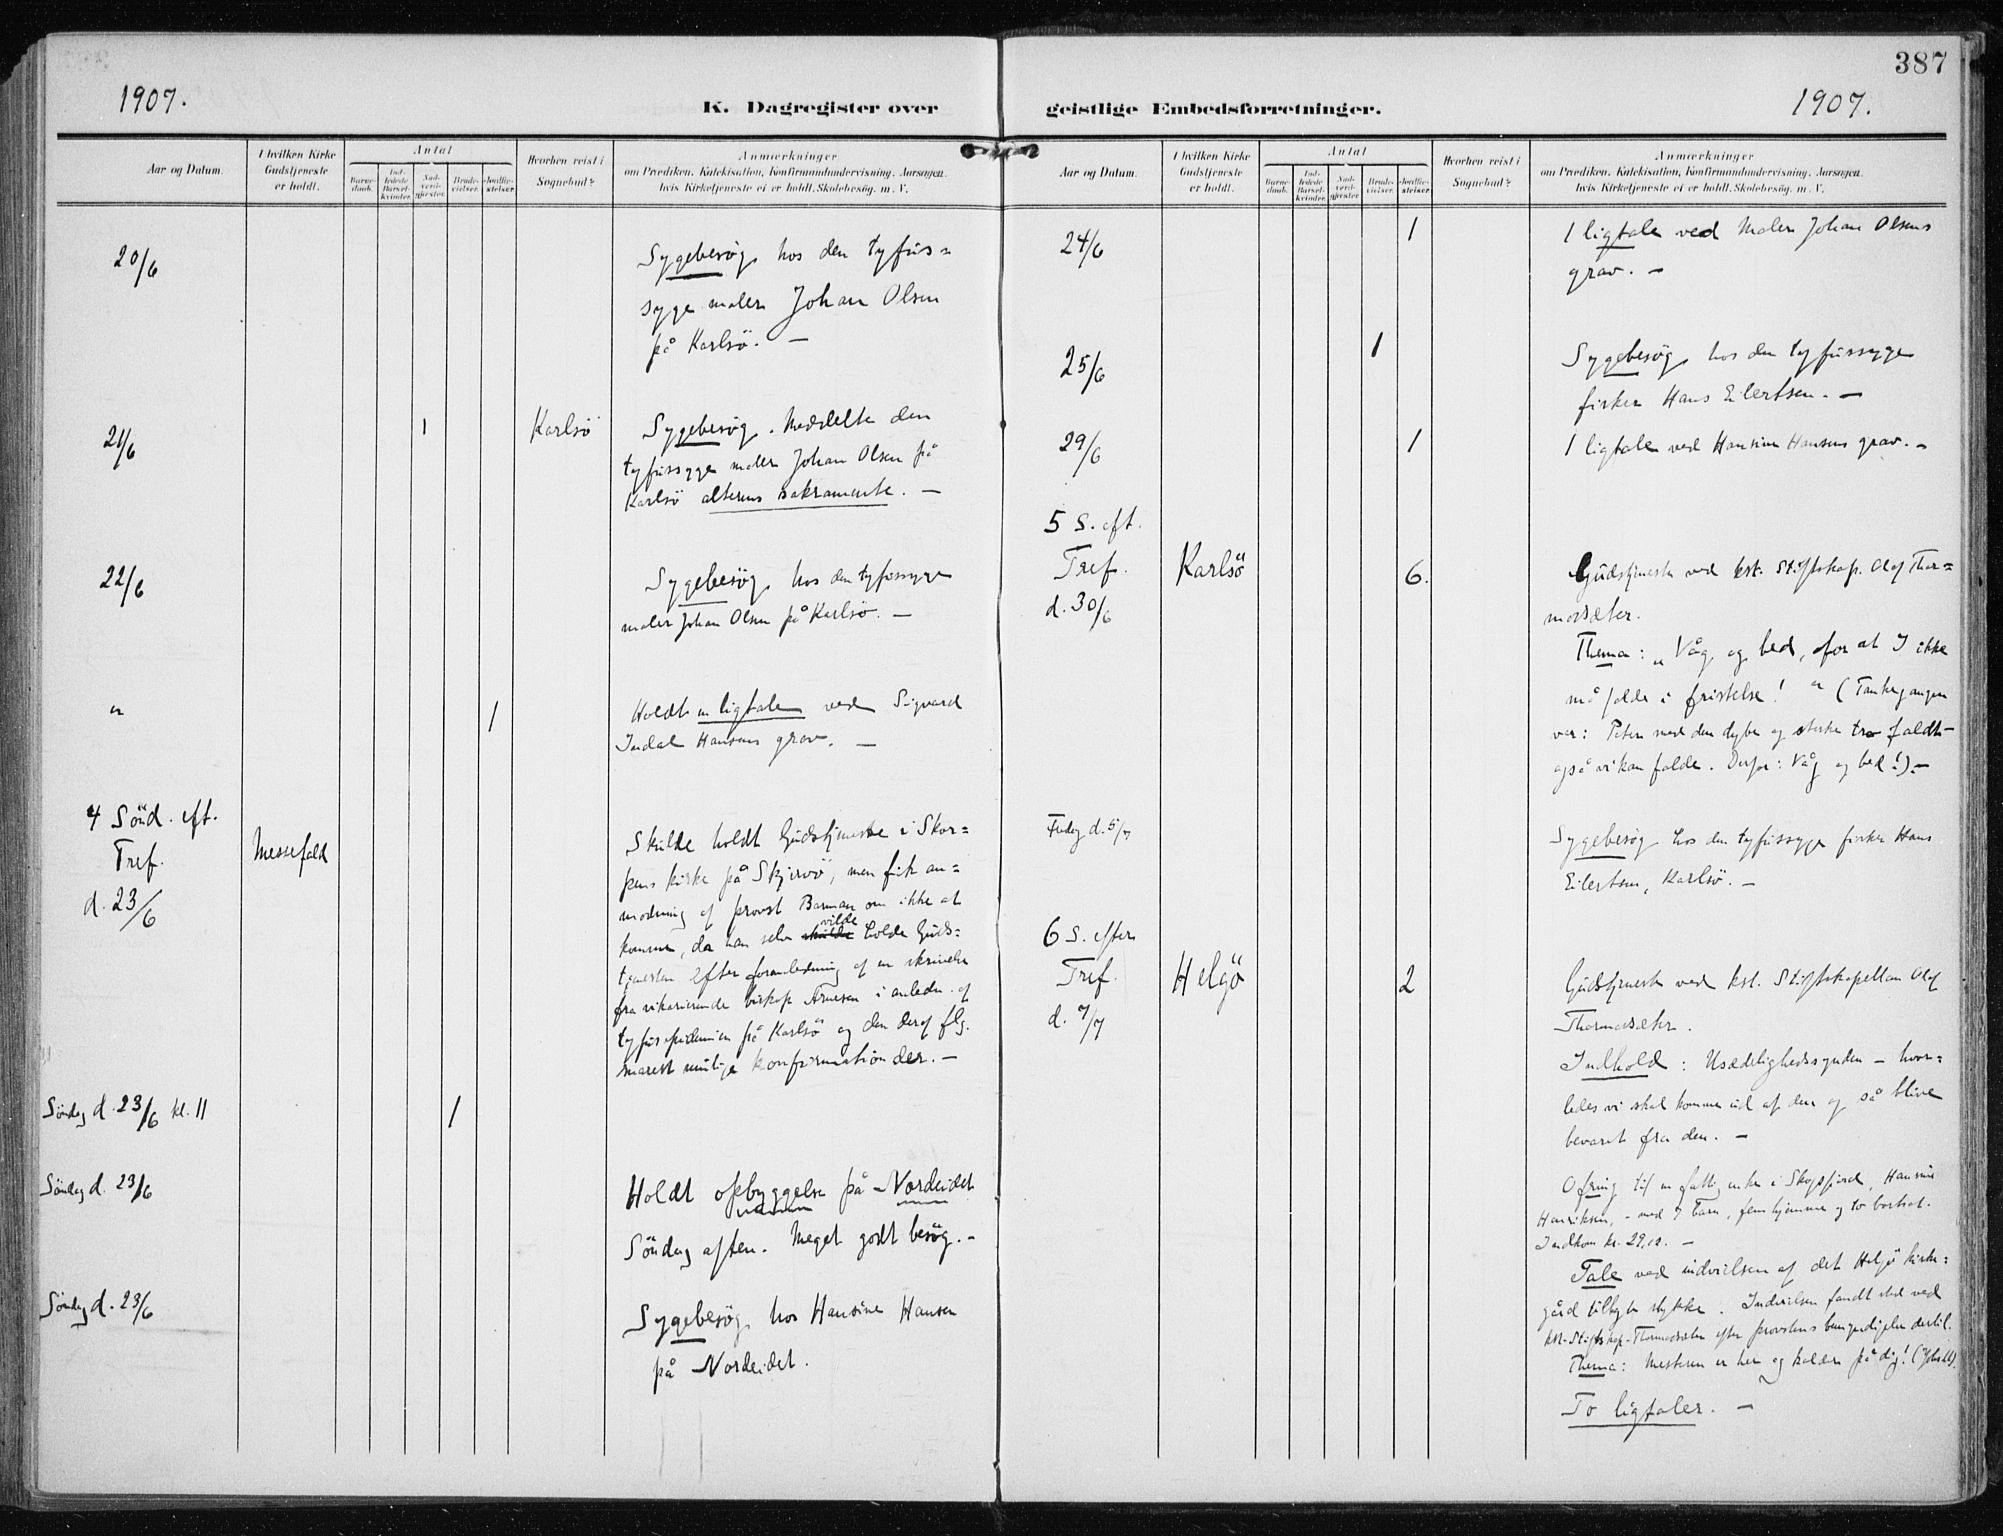 387
1907.
K. Dagregister over
geistlige Embedsforretninger.
1907.
Aar og Datum.
I hvilken Kirke
Gudstjeneste
er holdt.
Antal
Barne-
daab.
Ind-
ledede
Barsel-
kvinder.
Nad-
verd-
gjester.
Brude-
vielser.
Jordfæ-
stelser.
Hvorhen reist i
Sognebud?
Anmærkninger
om Prædiken, Katekisation, Konfirmandundervisning, Aarsagen,
hvis Kirketjeneste ei er holdt, Skolebesøg, m. V.
20/6
Sygebesøg hos den tyfus=
syge maler Johan Olsen
på Karlsö. —
21/6
1
Karlsö
Sygebesøg. Meddelte den
tyfussyge maler Johan Olsen på
Karlsö alterens sakramente. —
22/6
Sygebesøg hos den tyfussyge
maler Johan Olsen på Karlsö. —
"
1
Holdt en ligtale ved Sigvard
Indal Hansens grav. —
4 Sönd. eft.
Tref.
d. 23/6
Messefald
Skulde holdt Gudstjeneste i Skor=
pens kirke på Skjervö, men fik an=
modning af provst Barman om ikke at
komme, da han selv skulde vilde holde Guds=
tjenesten efter foranledning af en skrivelse
fra vikarierende biskop Arnesen i anledn. af
tyfusepidemien på Karlsö og den deraf flg.
snarest mulige konfirmation der. —
Söndag d. 23/6 kl. 11
1
Söndag d. 23/6
Holdt opbyggelse på Nordeidet
Söndag aften. Meget godt besög. —
Söndag d. 23/6
Sygebesøg hos Hansine Hansen
på Nordeidet.
Aar og Datum.
I hvilken Kirke
Gudstjeneste
er holdt.
Antal
Barne-
daab.
Ind-
ledede
Barsel-
kvinder.
Nad-
verd-
gjester.
Brude-
vielser.
Jordfæ-
stelser.
Hvorhen reist i
Sognebud?
Anmærkninger
om Prædiken, Katekisation, Konfirmandundervisning, Aarsagen,
hvis Kirketjeneste ei er holdt, Skolebesøg, m. V.
24/6
1
1 ligtale ved Maler Johan Olsens
grav. —
25/6
1
Sygebesøg hos den tyfussyge
fisker Hans Eilertsen. —
29/6
1
1 ligtale ved Hansine Hansens grav. —
5 S. eft.
Tref.
d. 30/6
Karlsö
6.
Gudstjeneste ved kst. Stiftskap. Olaf Thor=
modsæter.
Thema: „Våg og bed, for at I ikke
må falde i fristelse!" (Tankegangen
var: Peter med den dybe og sterke tro faldt —
også vi kan falde. Derfor: Våg og bed!). —
Fredag d. 5/7
Sygebesøg hos den tyfussyge fisker Hans
Eilertsen, Karlsö. —
6 S. efter
Tref.
d. 7/7
Helgö
2
Gudstjeneste ved kst. Stiftskapellan Olaf
Thormodsæter.
Indhold: Usædelighedssynden — hvor=
ledes vi skal komme ud af den og så blive
bevaret fra den. —
Ofring til en fattig enke i Skogsfjord, Hansine
Henriksen, — med 7 barn, fem hjemme og to bortsat.
Indkom kr. 29,02. —
Tale ved indvielsen af det Helgö kirke=
gård tilbygte stykke. Indvielsen fandt sted ved
kst. Stiftskap. Thormodsæter efter provstens bemyndigelse dertil.
Thema: Mesteren er her og kalder på dig!
To ligtaler. —